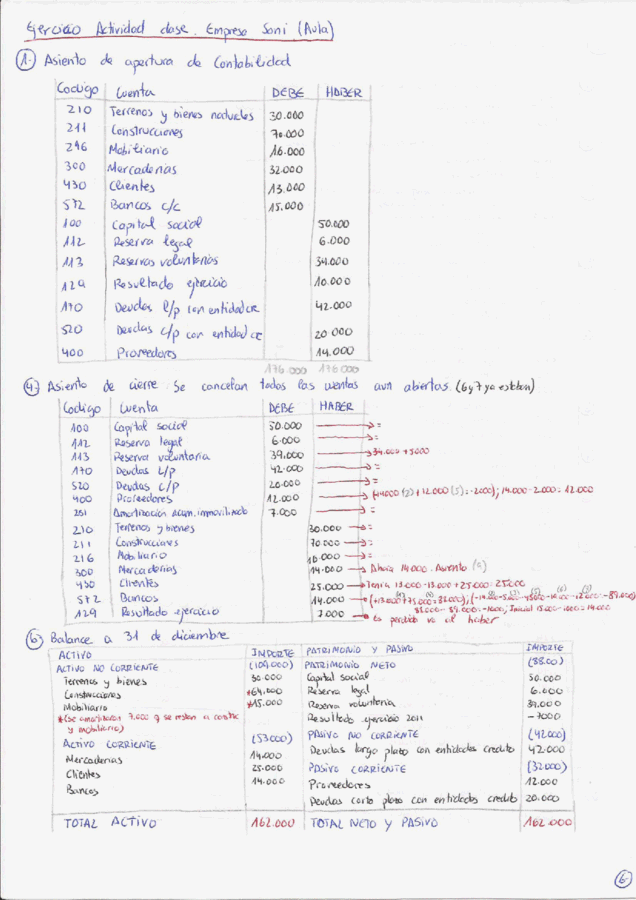 Ejercicio Actividad clase. Empresa Soni (Aula)
1. Asiento de apertura de Contabilidad
Codigo Cuenta DEBE HABER
210 Terrenos y bienes naturales 30.000
211 Construcciones 70.000
216 Mobiliario 16.000
300 Mercaderias 32.000
430 Clientes 13.000
572 Bancos c/c 15.000
100 Capital social 50.000
112 Reserva legal 6.000
113 Reservas voluntarias 34.000
129 Resultado ejercicio 10.000
170 Deudas l/p con entidad CR 42.000
520 Deudas c/p con entidad CR 20 000
400 Proveedores 14.000
176.000 176 000
4. Asiento de cierre Se cancelan todas las cuentas aun abiertas. (6 y 7 ya estaban)
Codigo Cuenta DEBE HABER
100 Capital social 50.000 =
112 Reserva legal 6.000 =
113 Reserva voluntaria 39.000 34.000 + 5000
170 Deudas L/p 42.000 =
520 Deudas c/p 20.000 =
400 Proveedores 12.000 (-14000 (2) + 12.000 (5) = -2000); 14.000 - 2.000 = 12.000
281 Amortización acum. inmovilizado 7.000 =
210 Terrenos y bienes 30.000 =
211 Construcciones 70.000 =
216 Mobiliario 16.000 =
300 Mercaderias 14.000 Ahora 14.000. Asiento
430 Clientes 25.000 Tenia 13.000 - 13.000 + 25.000 = 25.000
572 Bancos 14.000
129 Resultado ejercicio 7.000 Es perdida va al haber
6. Balance a 31 de diciembre
ACTIVO IMPORTE PATRIMONIO Y PASIVO IMPORTE
ACTIVO NO CORRIENTE (109,000) PATRIMONIO NETO (88.00)
Terrenos y bienes 30.000 Capital social 50.000
Construcciones *64.000 Reserva legal 6.000
Mobiliario *15.000 Reserva voluntaria 39.000
*(se amortizaron 7.000 q se restan a constrc y mobiliario) Resultado ejercicio 2011 -7000
ACTIVO CORRIENTE (53000) PASIVO NO CORRIENTE (42000)
Mercaderias 14.000 Deudas largo plazo con entidades credito 42.000
Clientes 25.000 PASIVO CORRIENTE (32000)
Bancos 14.000 Proveedores 12.000
Deudas corto plazo con entidades credito 20.000
TOTAL ACTIVO 162.000 TOTAL NETO Y PASIVO 162.000
6